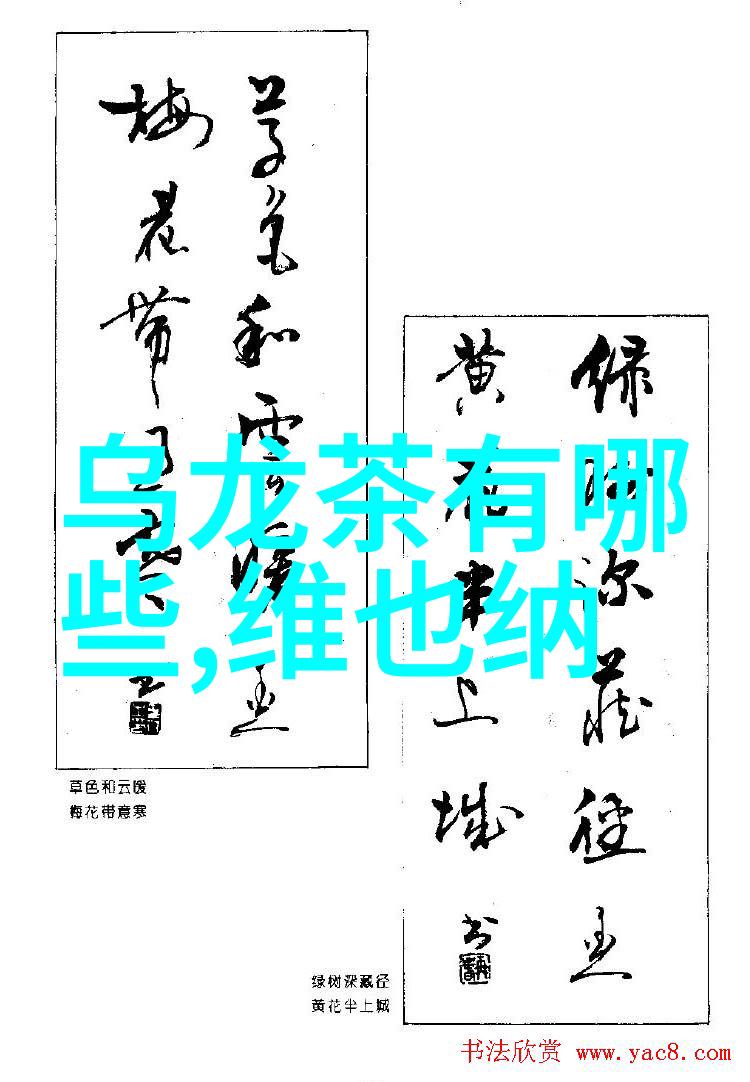 草色和雲暖
梅花帶意寒
乌龙茶有哪
些,维也纳
绿树深藏径
黄花半上城
草色和云暖
梅花带意寒
绿树深藏径
黄花半上城
书法欣赏 www.yac8.com